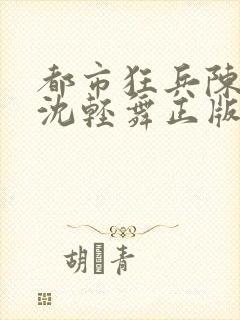 都市狂兵陳
沈輕舞正版
胡 青